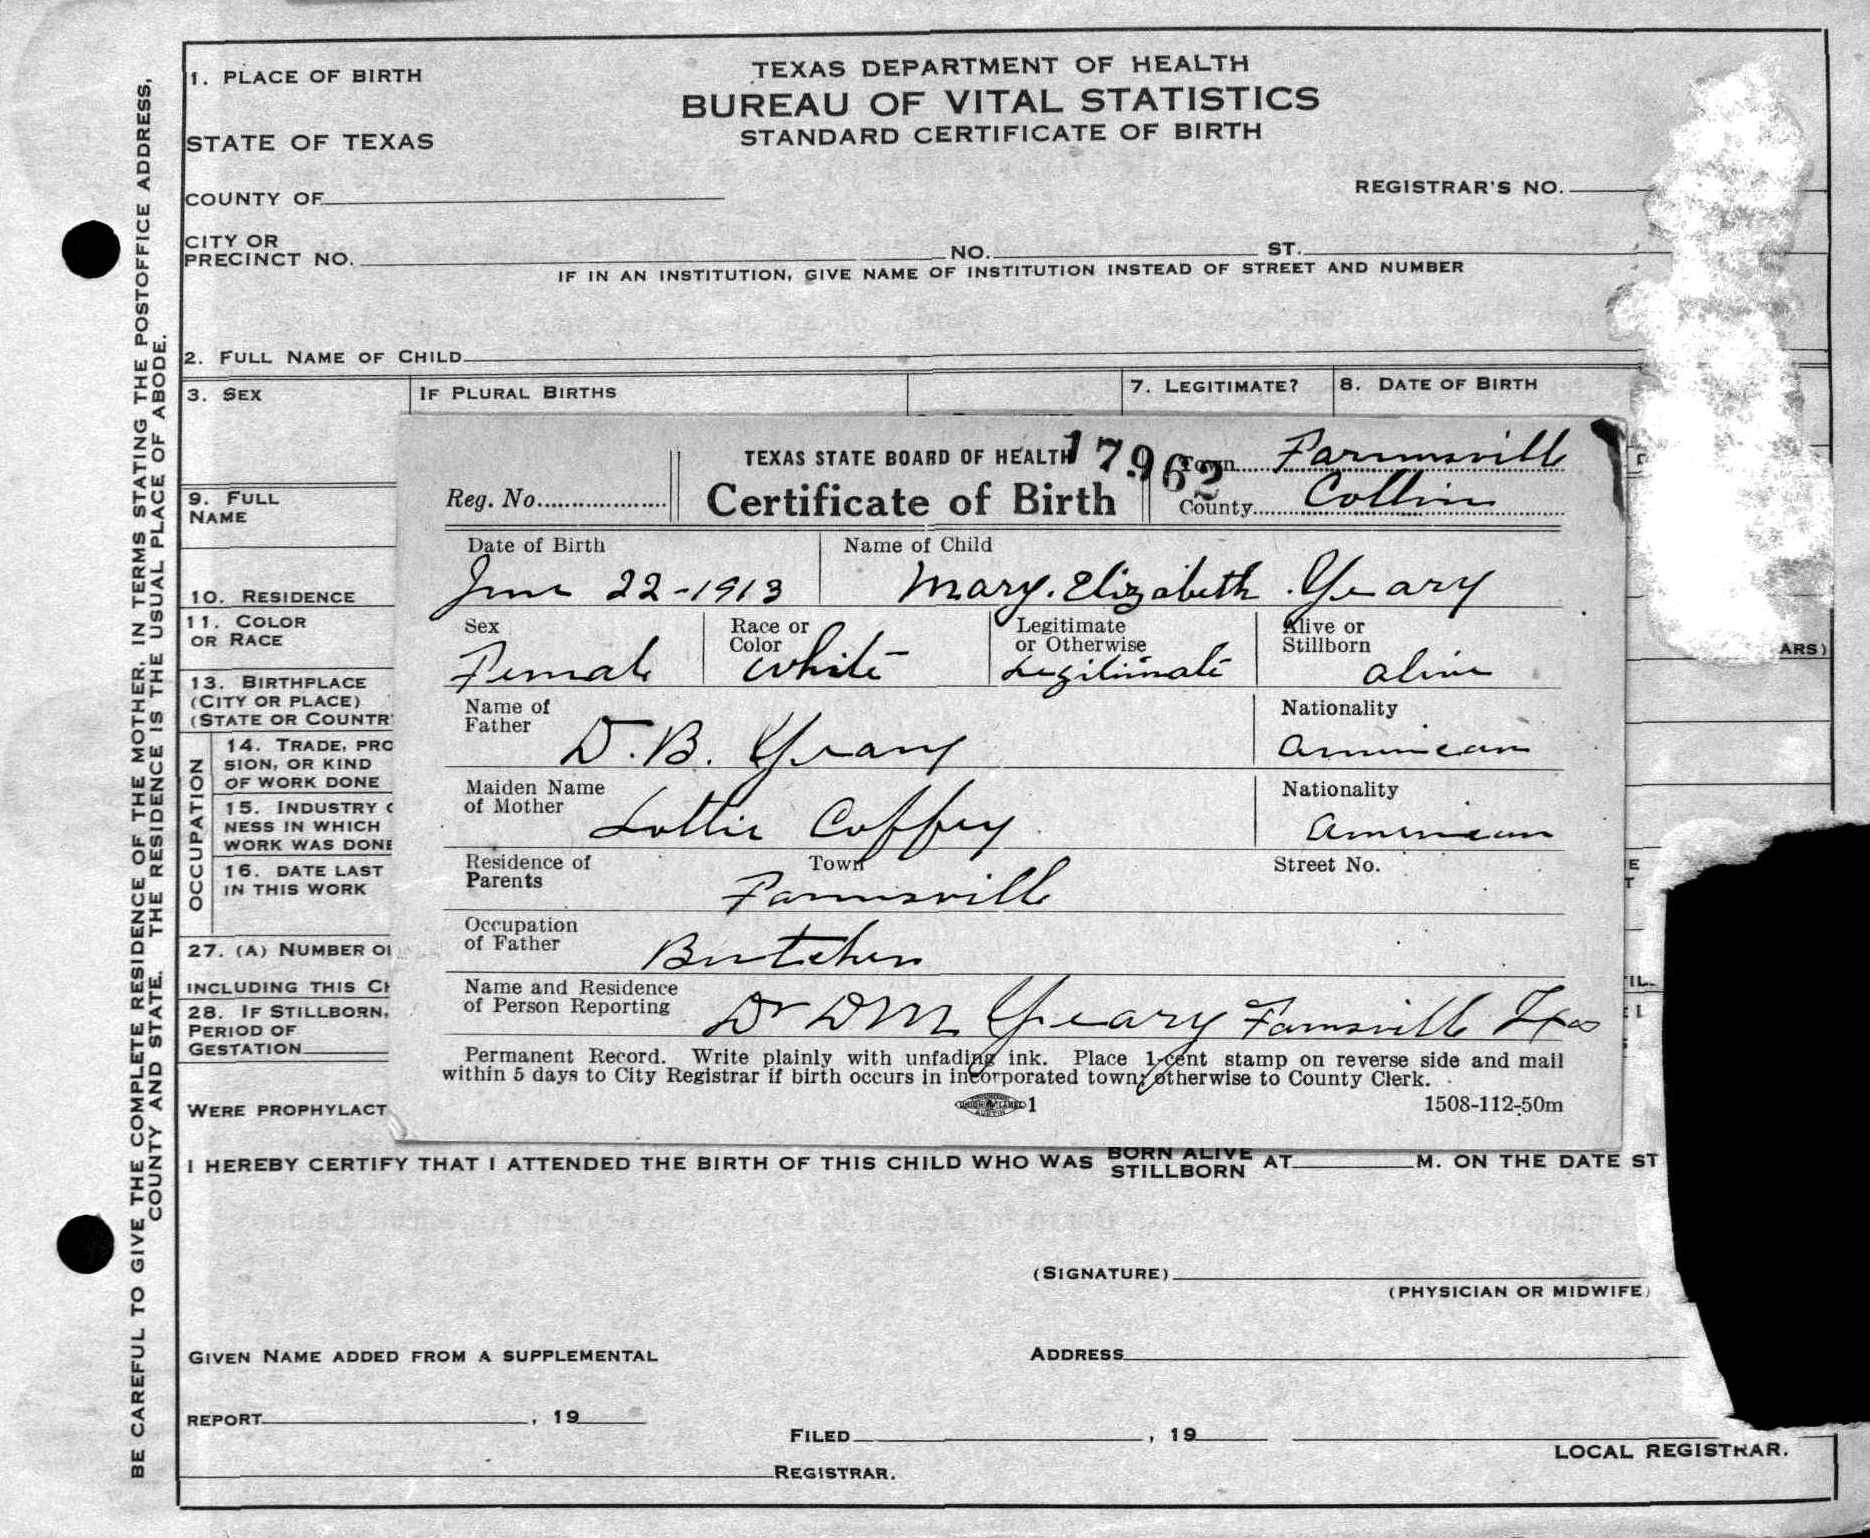 BE CAREFUL TO GIVE THE COMPLETE RESIDENCE OF THE MOTHER, IN TERMS STATING THE POSTOFFICE ADDRESS,
COUNTY AND STATE. THE RESIDENCE IS THE USUAL PLACE OF ABODE.
1. PLACE OF BIRTH
STATE OF TEXAS
COUNTY OF
CITY OR
PRECINCT NO.
TEXAS DEPARTMENT OF HEALTH
BUREAU OF VITAL STATISTICS
STANDARD CERTIFICATE OF BIRTH
REGISTRAR'S NO.
NO. ST.
IF IN AN INSTITUTION, GIVE NAME OF INSTITUTION INSTEAD OF STREET AND NUMBER
2. FULL NAME OF CHILD
3. SEX IF PLURAL BIRTHS 7. LEGITIMATE? 8. DATE OF BIRTH
9. FULL
NAME
10. RESIDENCE
11. COLOR
OR RACE
ARS)
13. BIRTHPLACE
(CITY OR PLACE)
(STATE OR COUNTR
OCCUPATION
14. TRADE, PRO
SION, OR KIND
OF WORK DONE
15. INDUSTRY
NESS IN WHICH
WORK WAS DONE
16. DATE LAST
IN THIS WORK
27. (A) NUMBER O
INCLUDING THIS C
28. IF STILLBORN,
PERIOD OF
GESTATION
WERE PROPHYLACT
TEXAS STATE BOARD OF HEALTH 17962 Town Farmsvill
Reg. No. Certificate of Birth County Collin
Date of Birth Name of Child
June 22-1913 Mary. Elizabeth Yeary
Sex Race or Color Legitimate or Otherwise Alive or Stillborn
Female White Legitimate alive
Name of Father D.B. Yeary Nationality American
Maiden Name of Mother Lottie Coffey Nationality American
Residence of Parents Town Farmsville Street No.
Occupation of Father Butcher
Name and Residence of Person Reporting Dr DM Yeary Farmsville Txas
Permanent Record. Write plainly with unfading ink. Place 1-cent stamp on reverse side and mail
within 5 days to City Registrar if birth occurs in incorporated town; otherwise to County Clerk.
1 1508-112-50m
I HEREBY CERTIFY THAT I ATTENDED THE BIRTH OF THIS CHILD WHO WAS BORN ALIVE STILLBORN AT M. ON THE DATE ST
(SIGNATURE)
(PHYSICIAN OR MIDWIFE)
GIVEN NAME ADDED FROM A SUPPLEMENTAL
ADDRESS
REPORT , 19
FILED , 19
LOCAL REGISTRAR.
REGISTRAR.